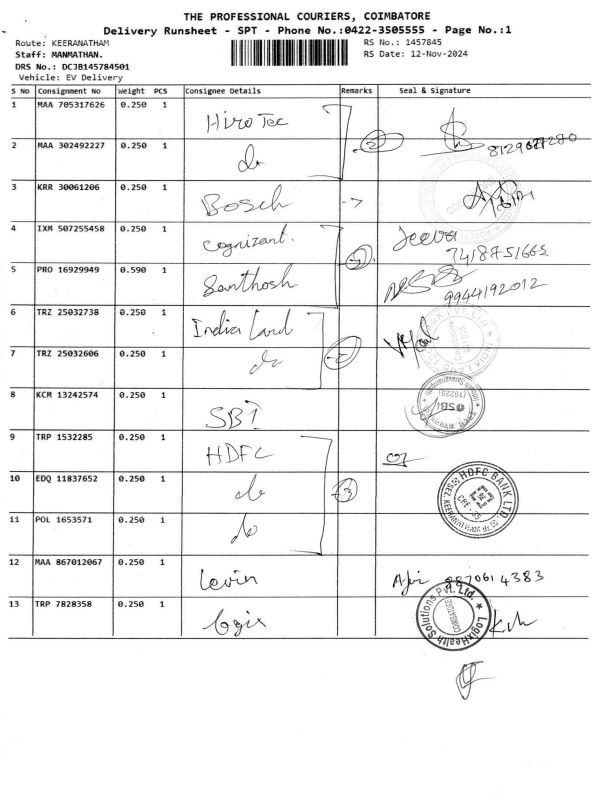 THE PROFESSIONAL COURIERS, COIMBATORE
Delivery Runsheet - SPT - Phone No.:0422-3505555 - Page No.:1
Route: KEERANATHAM
RS No.: 1457845
Staff: MANMATHAN.
RS Date: 12-Nov-2024
DRS No.: DCJB145784501
Vehicle: EV Delivery
S No Consignment No Weight PCS Consignee Details Remarks Seal & Signature
1 MAA 705317626 0.250 1 Hiro Tec
2 MAA 302492227 0.250 1 do 2
3 KRR 30061206 0.250 1 Bosch
4 IXM 507255458 0.250 1 Cognizant. Jeeva 7418751665
5 PRO 16929949 0.590 1 Santhosh 9944192012
6 TRZ 25032738 0.250 1 India Land
7 TRZ 25032606 0.250 1 do 2
8 KCM 13242574 0.250 1 SBI SBI
9 TRP 1532285 0.250 1 HDFC
10 EDQ 11837652 0.250 1 do 3 HDFC BANK LTD
11 POL 1653571 0.250 1 do
12 MAA 867012067 0.250 1 Levin
13 TRP 7828358 0.250 1 logix LogixHealth Solutions Pvt. Ltd. COIMBATORE